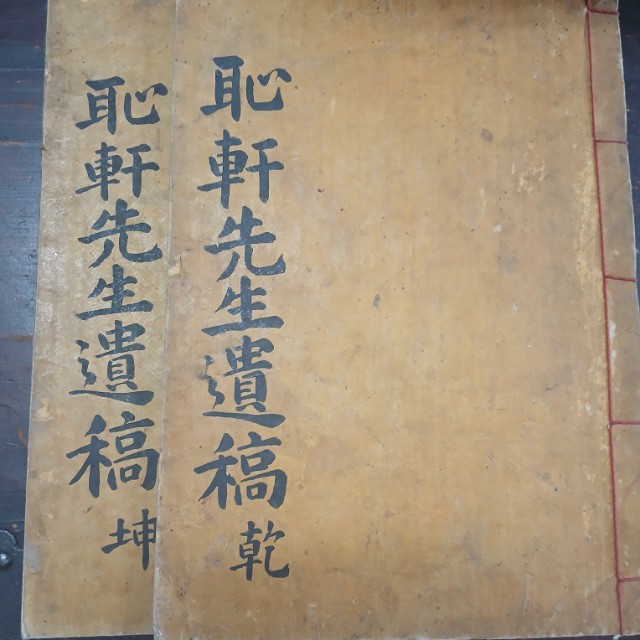 恥軒先生遺稿 乾
恥軒先生遺稿 坤